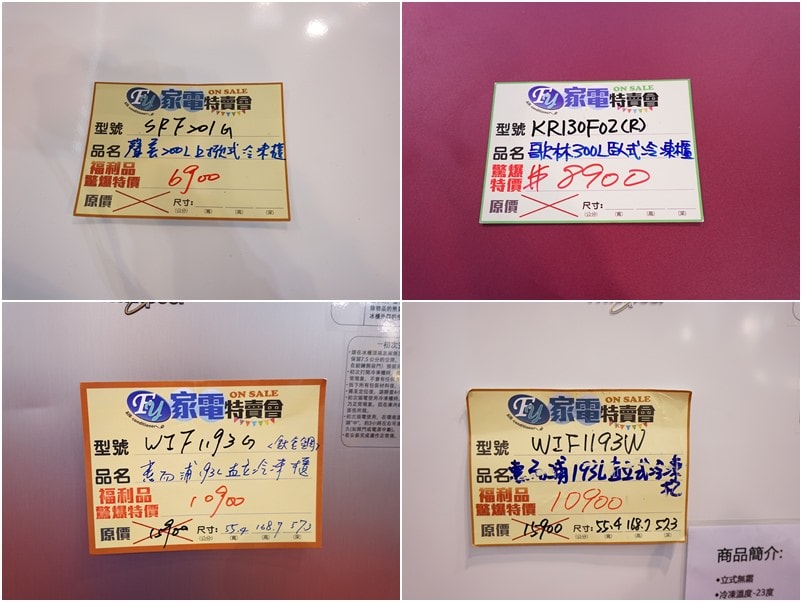 FU 家電特賣會 ON SALE
型號 SRF201G
品名 聲寶200L上掀式冷凍櫃
福利品
驚爆特價 6900
原價 尺寸:
(公分) (寬) (高) (深)
FU 家電特賣會 ON SALE
型號 KR130F02(R)
品名 歌林300L臥式冷凍櫃
驚爆
特價 $8900
原價 尺寸:
(公分) (寬) (高) (深)
FU 家電特賣會 ON SALE
air conditioner
型號 WIF1193G
品名 惠而浦193L直立冷凍櫃
福利品
驚爆特價 10900
原價 15900 尺寸: 55.4 168.7 57.3
(公分) (寬) (高) (深)
FU 家電特賣會 ON SALE
air conditioner
型號 WIF1193W
品名 惠而浦193L直立式冷凍櫃
福利品
驚爆特價 10900
原價 15900 尺寸: 55.4 168.7 57.3
(公分) (寬) (高) (深)
商品簡介:
•立式無霜
•冷凍溫度-23度